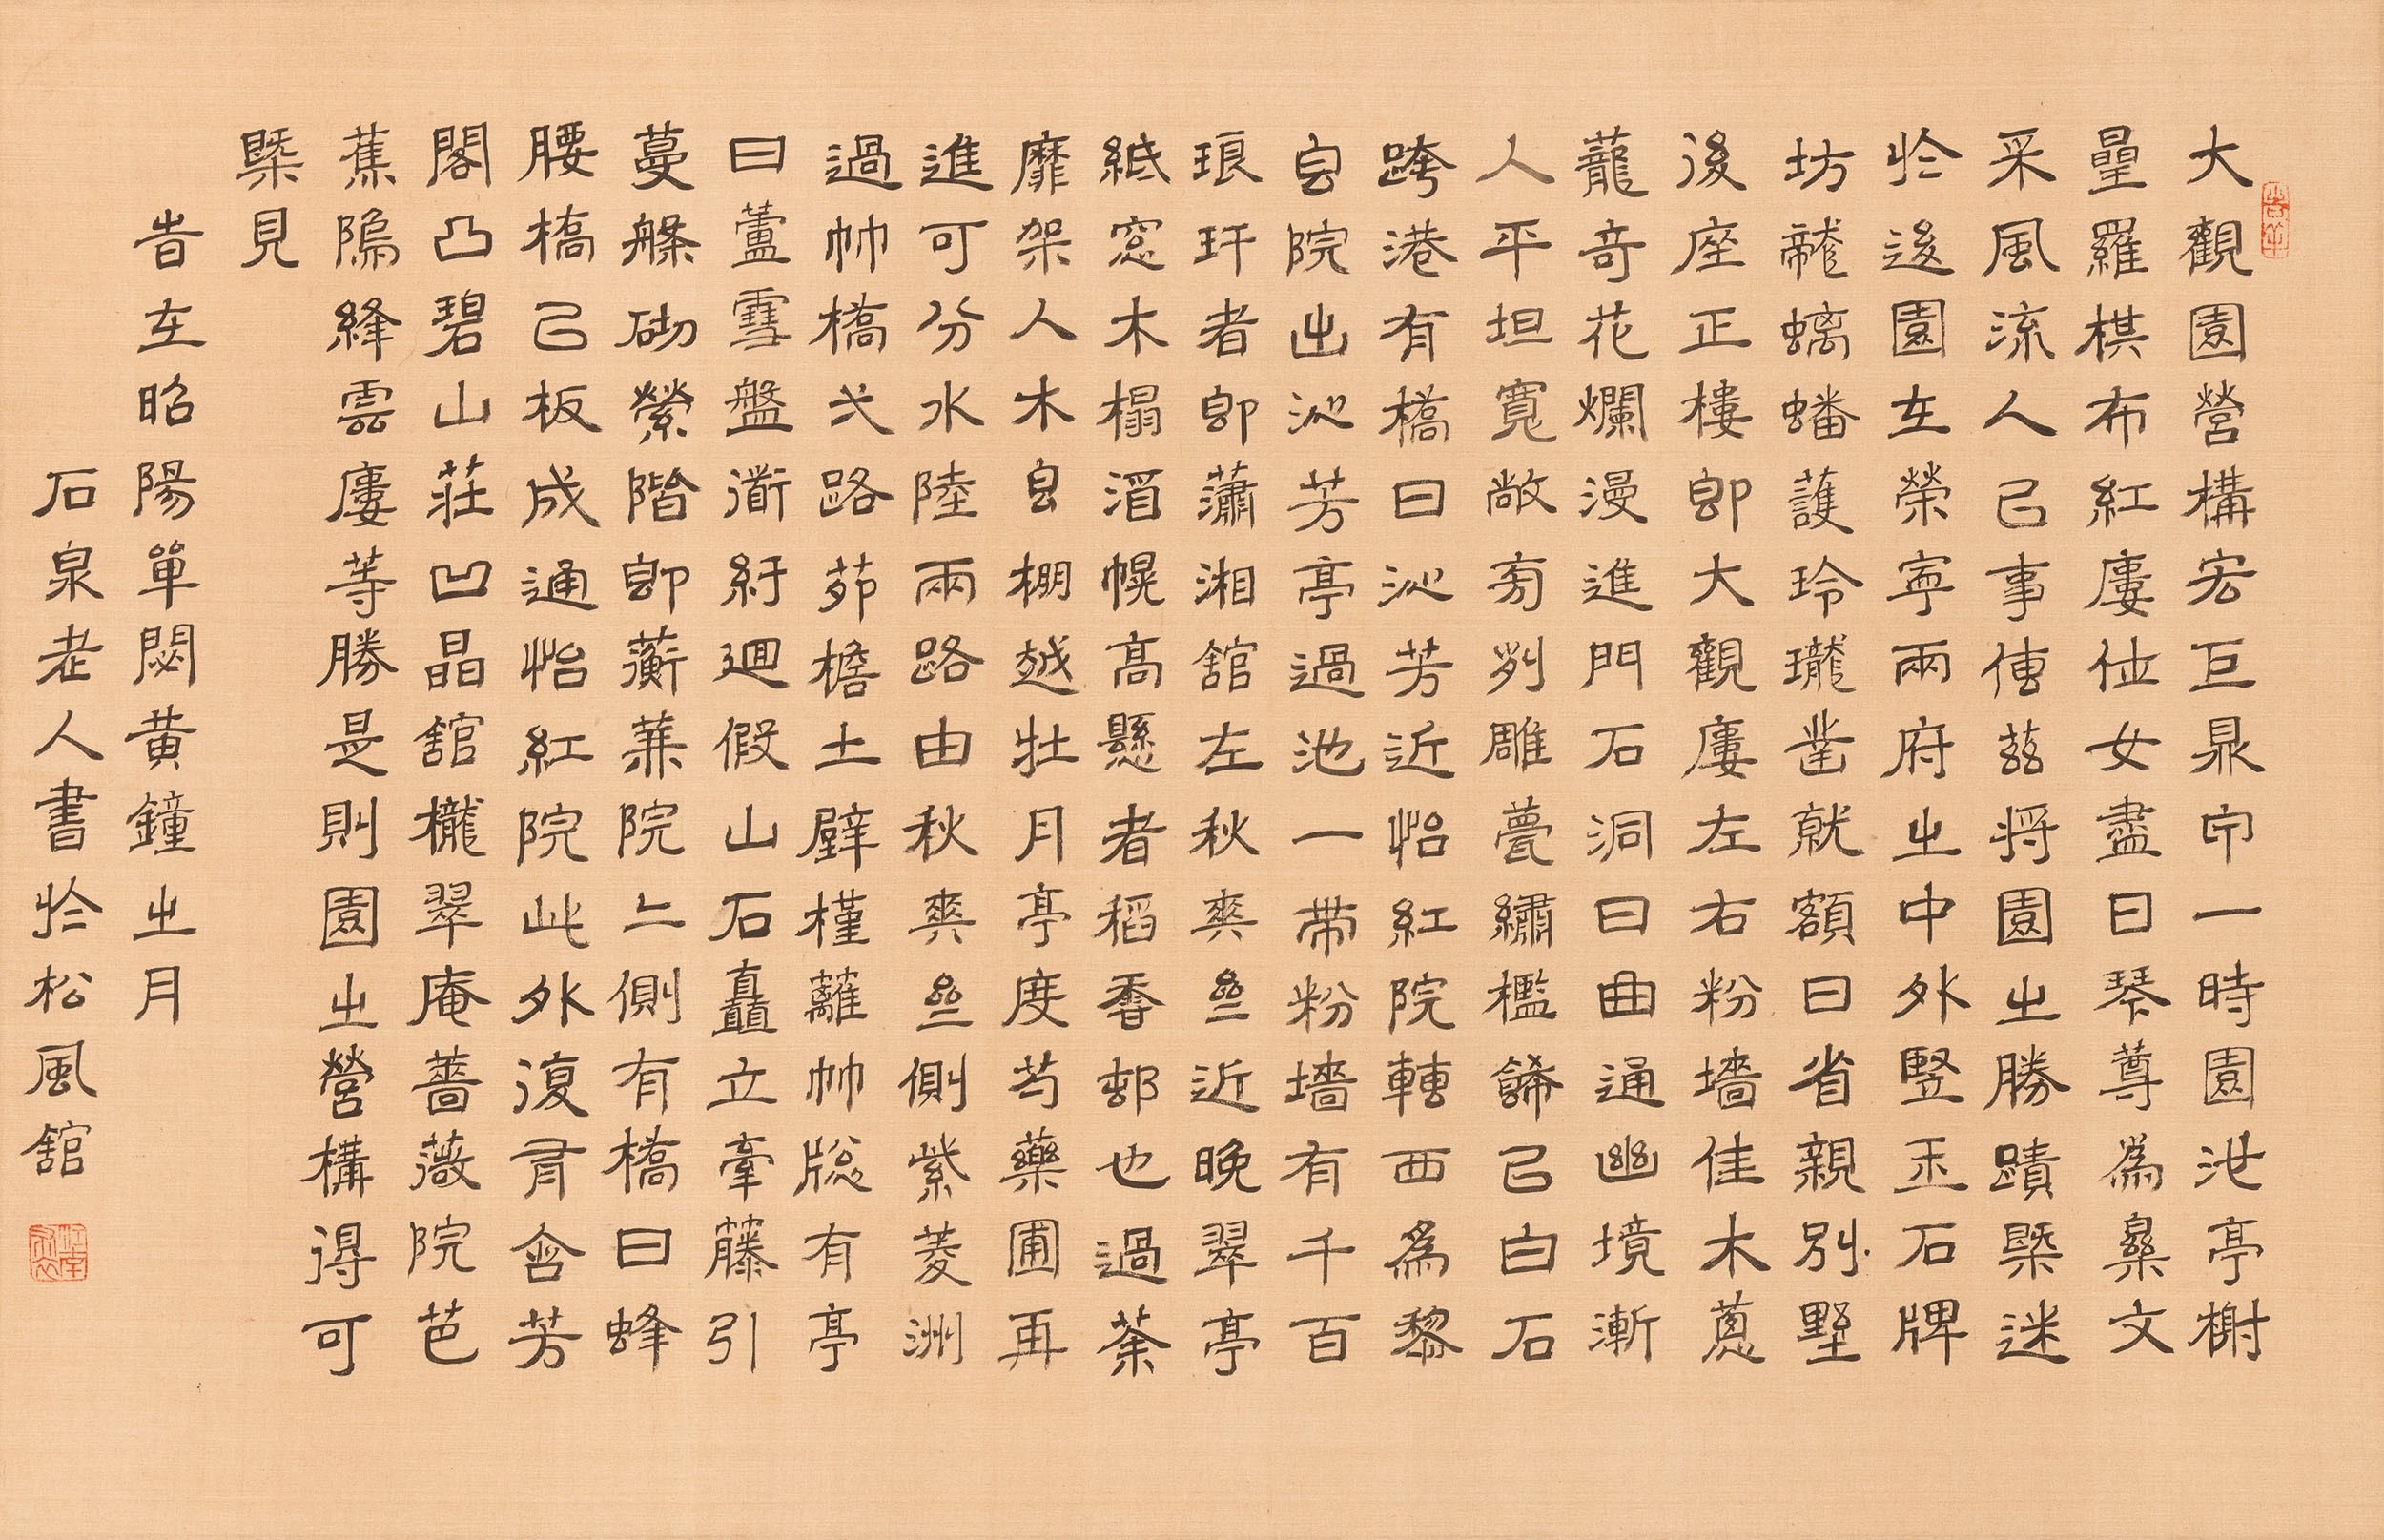 大觀園營構宏巨鼎命一時園池亭榭
疊羅棋布紅廔位女盡日琴尊為彝文
采風流人已事傳茲將園之勝蹟槩述
於後園在榮寧兩府之中外豎玉石牌
坊龍螭蟠護玲瓏凿就額曰省親別墅
後座正樓即大觀廔左右粉墻佳木蔥
蘢奇花爛漫進門石洞曰曲通幽境漸
人平坦寬敞有列雕甍繡檻飾已白石
跨港有橋曰沁芳近怡紅院轉西為黎
皀院出沁芳亭過池一帶粉墻有千百
琅玕者即瀟湘館左秋爽叁近晚翠亭
紙窓木榻酒幌高懸者稻香邨也過荼
蘼架人木皀棚越牡丹亭度芍藥圃再
進可分水陸兩路由秋爽叁側紫菱洲
過竹橋弌路茆檐土壁槿蘺竹牕有亭
曰蘆雪盤衜紆廻假山石矗立牽藤引
蔓槃砌縈階即蘅蕪院上側有橋曰蜂
腰橋已板成通怡紅院此外復有含芳
閣凸碧山莊凹晶館櫳翠庵薔薇院芭
蕉隖絳雲廔等勝是則園之營構得可
槩見
旹在昭陽單閼黃鐘之月
石泉老人書於松風館